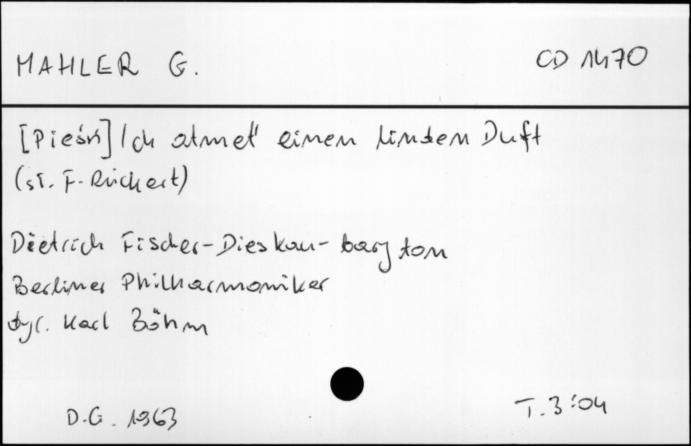 MAHLER G. CD 1470
[Pieśń] Ich atmet' einen linden Duft
(sł. F. Rückert)
Dietrich Fischer-Dieskau - baryton
Berliner Philharmoniker
dyr. Karl Böhm
D.G. 1963 T. 3:04